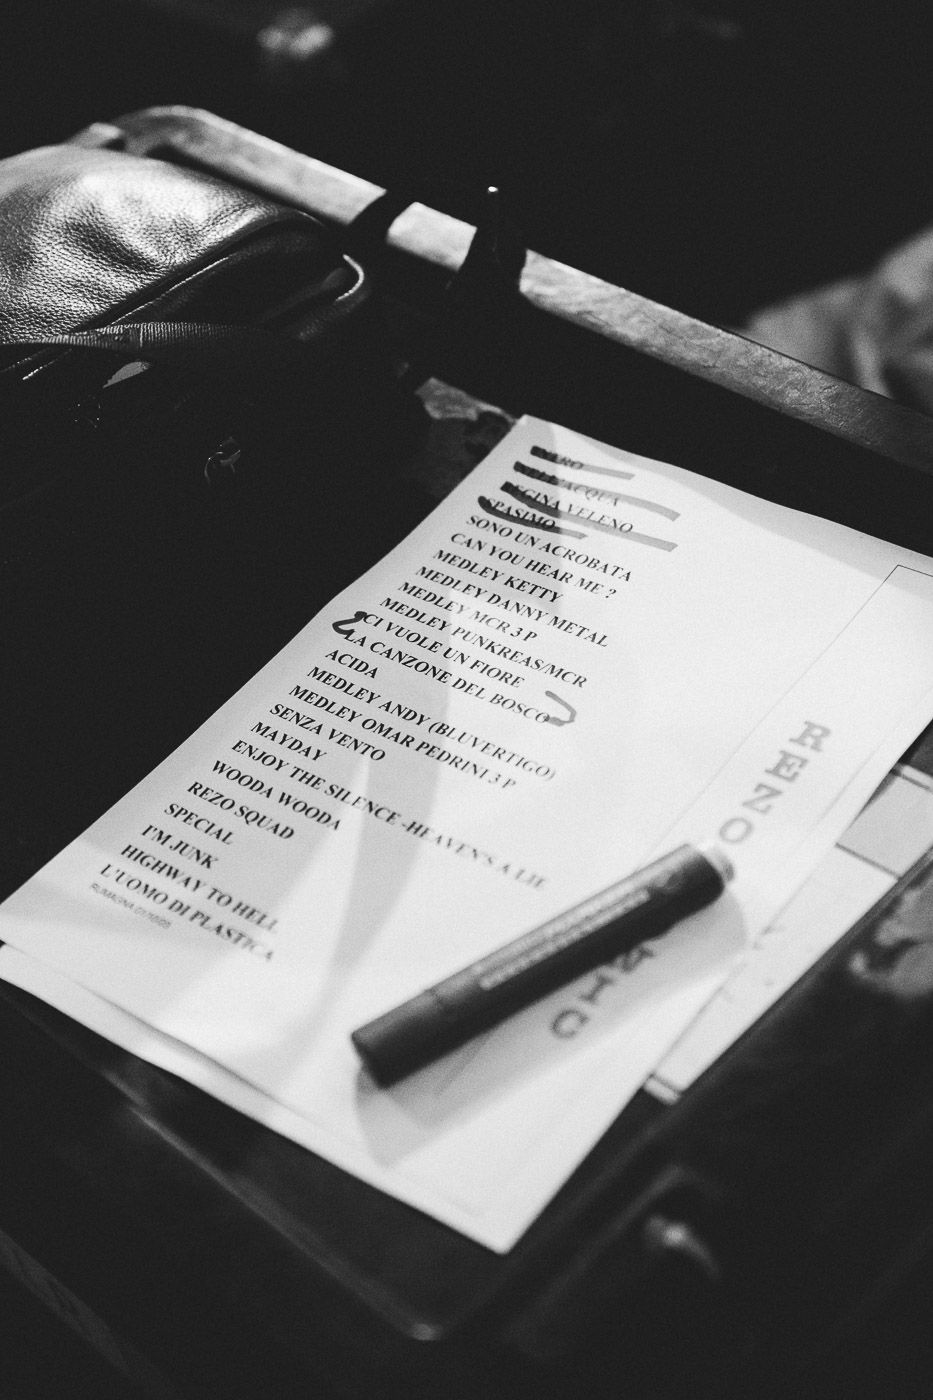 NELL'ACQUA
REGINA VELENO
SPASIMO
SONO UN ACROBATA
CAN YOU HEAR ME ?
MEDLEY KETTY
MEDLEY DANNY METAL
MEDLEY MCR 3 P
MEDLEY PUNKREAS/MCR
CI VUOLE UN FIORE
LA CANZONE DEL BOSCO
ACIDA
MEDLEY ANDY (BLUVERTIGO)
MEDLEY OMAR PEDRINI 3 P
SENZA VENTO
MAYDAY
ENJOY THE SILENCE -HEAVEN'S A LIE
WOODA WOODA
REZO SQUAD
SPECIAL
I'M JUNK
HIGHWAY TO HELL
L'UOMO DI PLASTICA
REZO